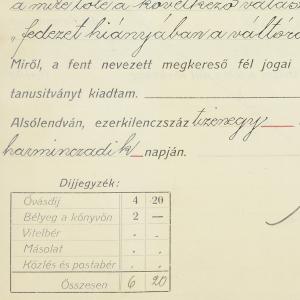 a mire tőle a következő válasz
„fedezet hiányában a váltóra
Miről, a fent nevezett megkereső fél jogai
tanusitványt kiadtam.
Alsólendván, ezerkilenczszáz tizenegy
harminczadik napján.
Díjjegyzék:
Óvásdij 4 20
Bélyeg a könyvön 2 —
Vitelbér . .
Másolat . .
Közlés és postabér . .
Összesen 6 20